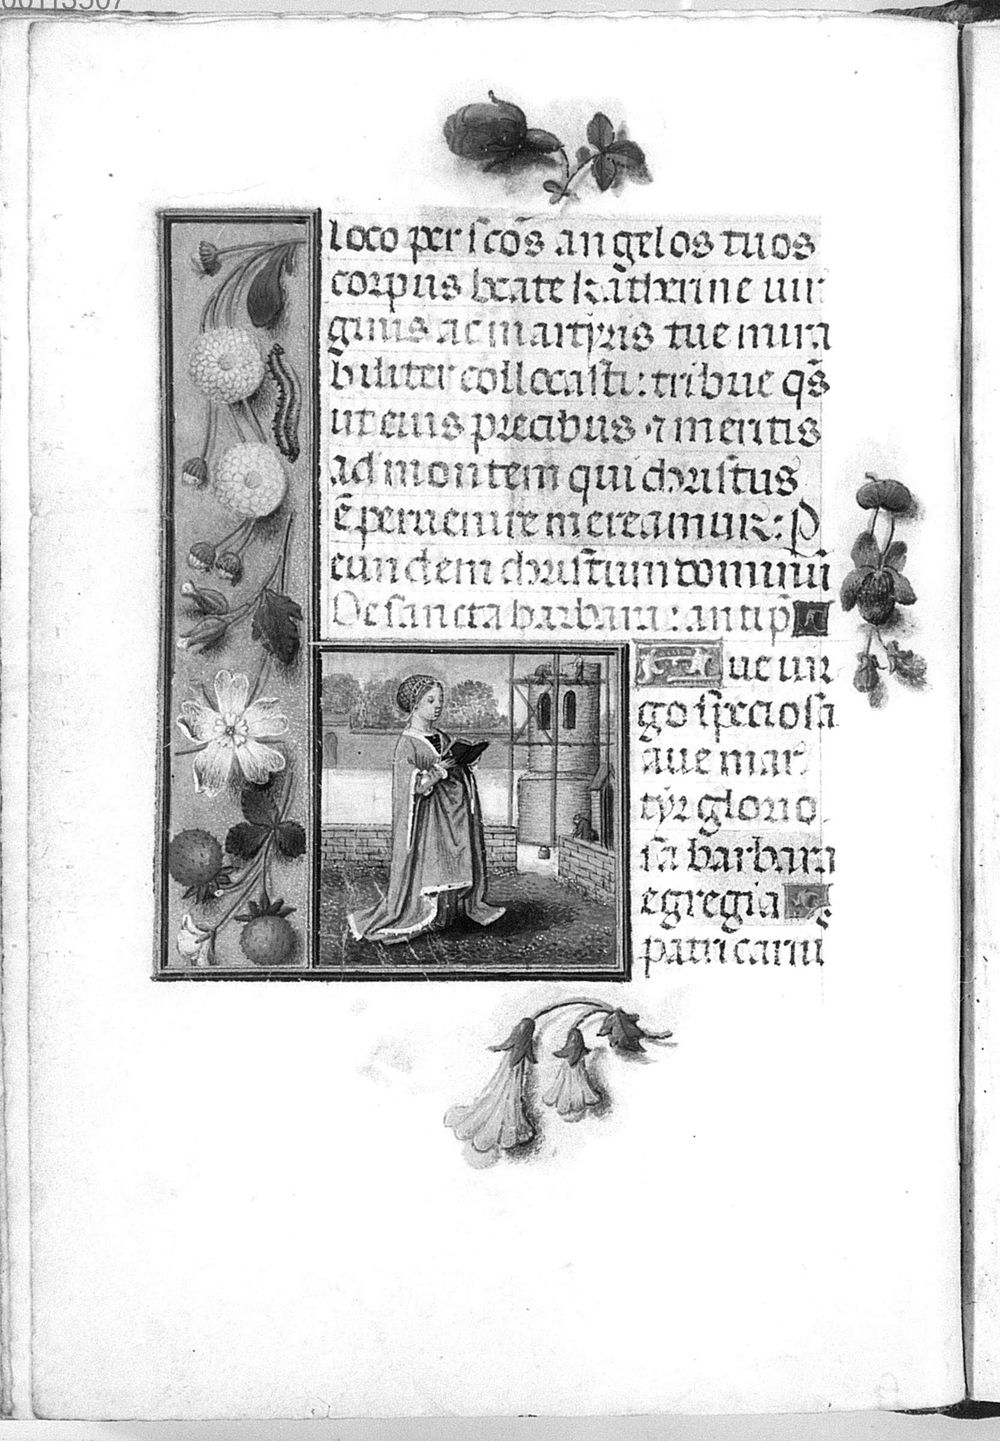 loco per scõs angelos tuos
corpus beate Katherine uir
ginis ac martyris tue mira
biliter collocasti: tribue qs̃
ut eius precibus ⁊ meritis
ad montem qui christus
ẽ peruenire mereamur: P
eundem christum dominũ
De sancta barbara: antiph̃ A
ue uir
go speciosa
aue mar
tyr glorio
sa barbara
egregia
patri carni